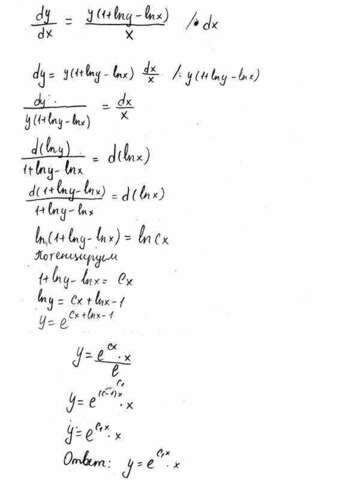 dy/dx = y(1+lny-lnx)/x /·dx
dy = y(1+lny-lnx) dx/x /: y(1+lny-lnx)
dy/y(1+lny-lnx) = dx/x
d(lny)/1+lny-lnx = d(lnx)
d(1+lny-lnx)/1+lny-lnx = d(lnx)
ln(1+lny-lnx) = ln Cx
Потенцируем
1+lny-lnx = Cx
lny = Cx + lnx - 1
y = e^(Cx+lnx-1)
y = e^(Cx)·x/e
y = e^((C-1)x)·x
y = e^(C₁x)·x
Ответ: y = e^(C₁x)·x